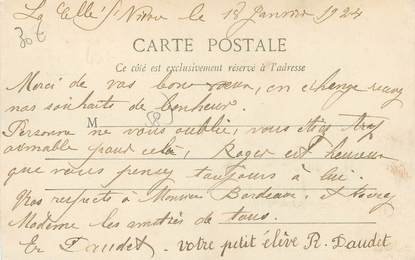 La Celle St Nivou le 13 Janvier 1924
30 €
CARTE POSTALE
Ce côté est exclusivement réservé à l'adresse
Merci de vos bons voeux, en échange recevez
nos souhaits de bonheur.
M (R)
Personne ne vous oublie, vous êtes trop
aimable pour cela, Roger est heureux
que vous pensez toujours à lui.
Nos respects à Monsieur Bordeaux, et recevez
Madame les amitiés de tous.
Er Daudet. votre petit élève R. Daudet